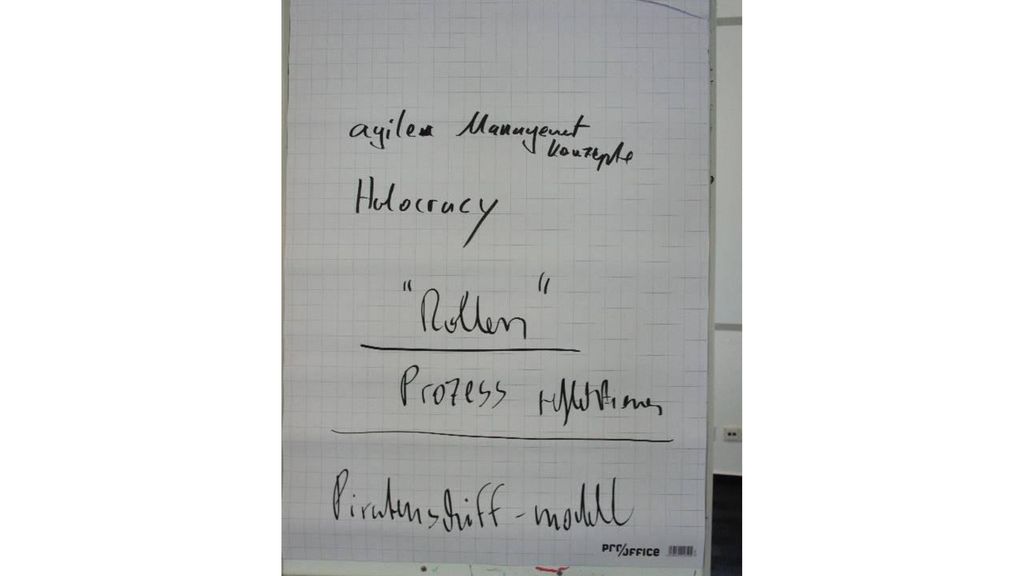 agile Management
Konzepte
Holocracy
"Rollen"
Prozess reflektieren
Piratenschiff-modell
pro/office